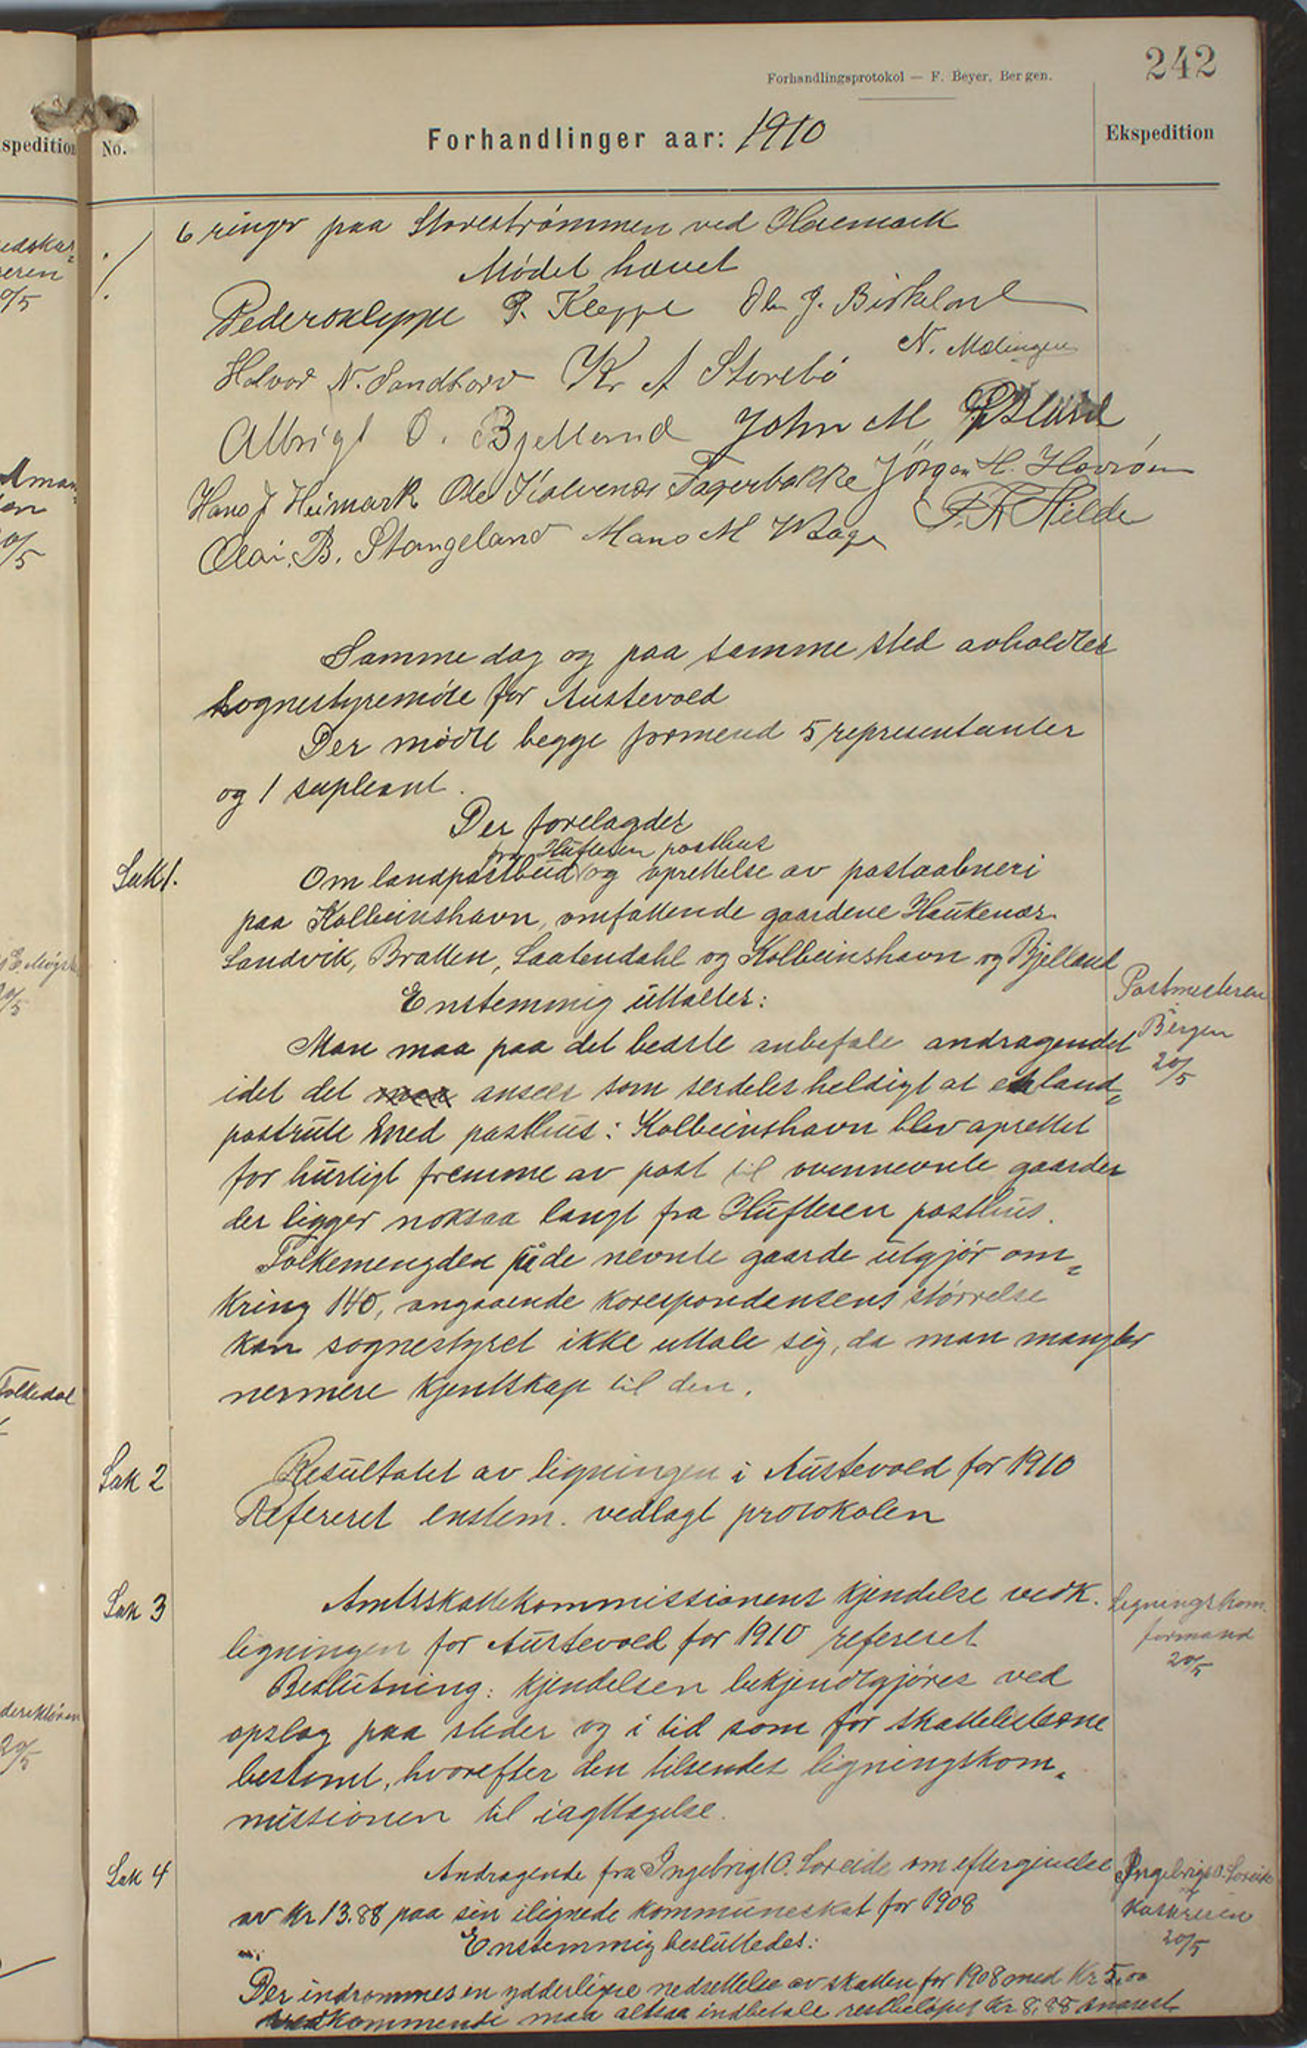 242
Forhandlingsprotokol — F. Beyer, Bergen.
Forhandlinger aar: 1910
Ekspedition
No.
6 ringer paa Storestrømmen ved Heremark
Mødet hævet
Peder Kleppe P. Kleppe Ole J. Birkeland
N. Møkingen
Halvor N. Sandtorv Kr A Storebø
Albrigt O. Bjelland John M
Hans J Heimark Ole Kalvenes Fagerbakke Jørgen H. Havrøen
Olai B. Stangeland Mans M Vaage Hilde
Samme dag og paa samme sted avholdtes
sognestyremøte for Austevold
Der mødte begge formend 5 representanter
og 1 supleant.
Der forelagdes
fra Hufteren posthus
Sak 1.
Om landpostbud og oprettelse av postaabneri
paa Kolbeinshavn, omfattende gaardene Haukenæs
Sandvik, Bratten, Laatendahl og Kolbeinshavn og Bjelland
Enstemmig uttaltes:
Postmesteren
Bergen
20/5
Man maa paa det bedste anbefale andragendet
idet det ansees som serdeles heldigt at en land-
postrute med posthus i Kolbeinshavn blev oprettet
for hurtigt fremme av post til ovennevnte gaarder
der ligger noksaa langt fra Hufteren posthus.
Folkemengden på de nevnte gaarde utgjør om-
kring 140, angaaende korespondansens størrelse
kan sognestyret ikke uttale sig, da man mangler
nermere kjentskap til den.
Sak 2
Resultatet av ligningen i Austevold for 1910
Refereret enstem. vedlagt protokolen
Sak 3
Amtsskattekommissionens kjendelse vedk.
ligningen for Austevold for 1910 refereret
Ligningskom.
formand
20/5
Beslutning: kjendelsen bekjendtgjøres ved
opslag paa steder og i tid som for skattelisterne
bestemt, hvorefter den tilsendes ligningskom-
missionen til iagttagelse.
Sak 4
Andragende fra Ingebrigt O. Loreide om eftergivelse
av kr 13.88 paa sin ilignede kommuneskat for 1908
Ingebrigt O. Loreide
kasereren
20/5
Enstemmig besluttedes:
Der indrømmes en ydderligere nedsettelse av skatten for 1908 med Kr 5.00
vedkommende maa altsaa indbetale restbeløpet kr 8.88 snarest